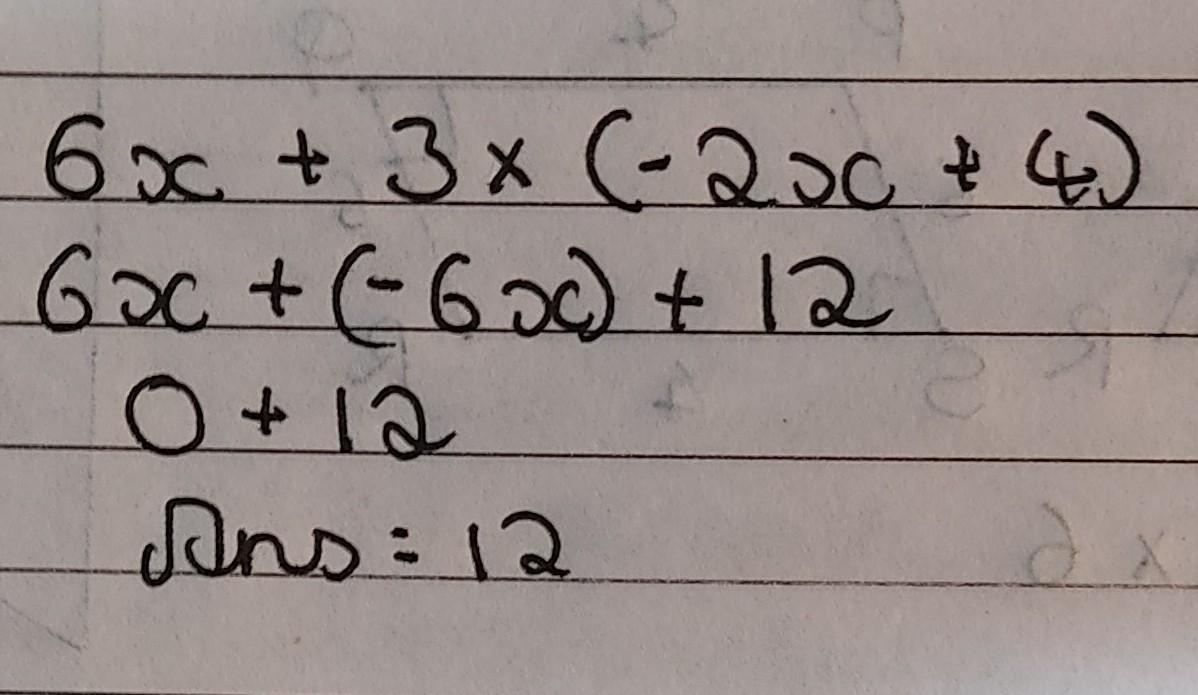 6x + 3 × (-2x + 4)
6x + (-6x) + 12
0 + 12
Ans = 12